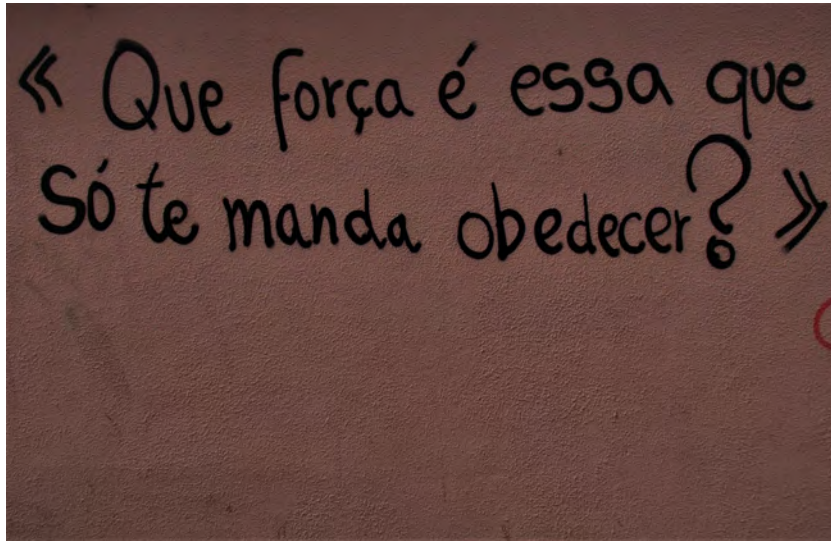 « Que força é essa que
Só te manda obedecer? »